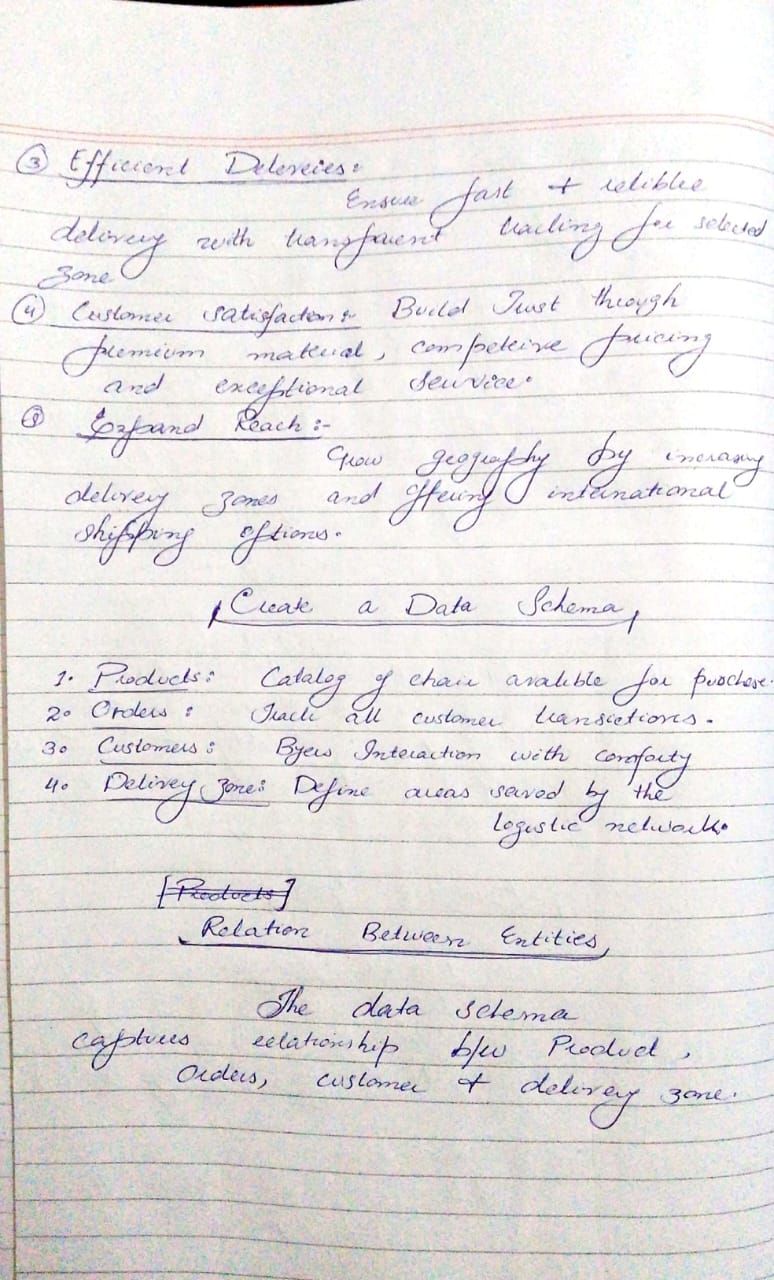 ③ Efficient Deleveies:
Ensure fast + relible
delivery with transparent tracking for selected
zone
④ Customer satisfaction:- Build Trust through
premium material, competeive pricing
and exceptional Service.
⑤ Expand Reach :-
Grow geography by increasing
delivery zones and offering international
shipping options.
Create a Data Schema
1. Products: Catalog of chair avalible for puschase.
2. Orders : Track all customer transictions.
3. Customers : Byers Interaction with comforty
4. Delivey Zone: Define areas served by the
logistic network.
[Products]
Relation Between Entities
The data schema
captures relationship b/w Product,
Orders, customer + delivery zone.